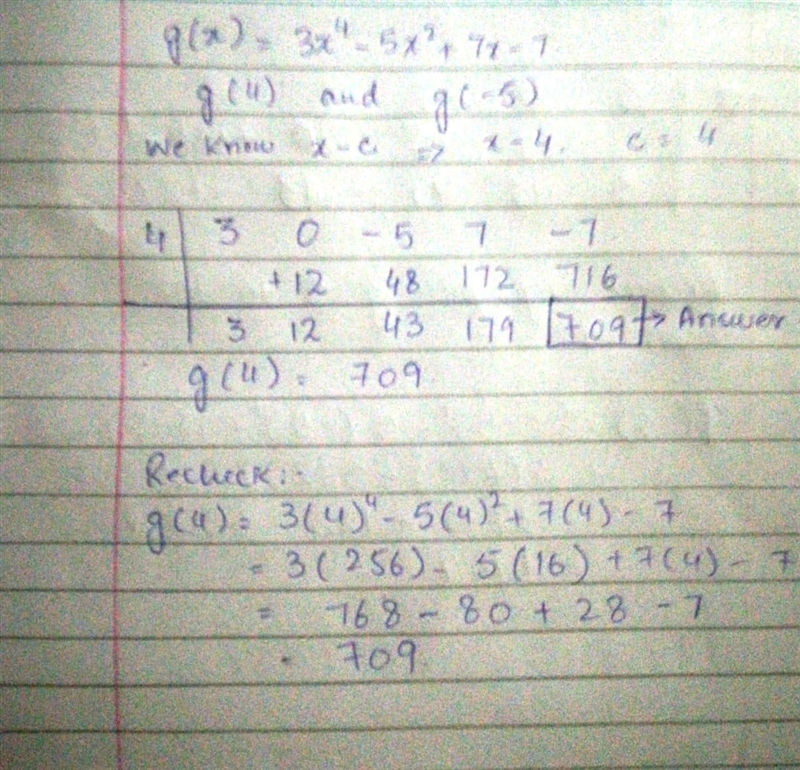 g(x) = 3x⁴ - 5x² + 7x - 7
g(4) and g(-5)
We know x - c ⇒ x = 4. c = 4
4 | 3 0 -5 7 -7
+12 48 172 716
3 12 43 179 709 → Answer
g(4) = 709
Recheck:-
g(4) = 3(4)⁴ - 5(4)² + 7(4) - 7
= 3(256) - 5(16) + 7(4) - 7
= 768 - 80 + 28 - 7
= 709